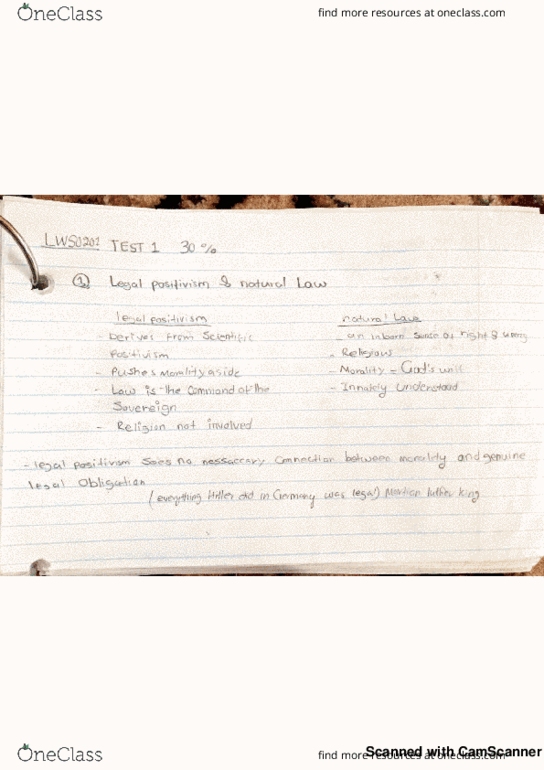 OneClass find more resources at oneclass.com
LWSO201 TEST 1 30%
① Legal positivism & natural Law
legal positivism natural Law
- Derives From Scientific - an inborn sense of right & wrong
positivism - Religious
- Pushes Morality aside - Morality = God's will
- Law is the Command of the - Innately understood
Sovereign
- Religion not involved
- legal positivism sees no nessaccary connection between morality and genuine
legal obligation
(everything Hitler did in Germany was legal) Martian luther king
OneClass find more resources at oneclass.com
Scanned with CamScanner